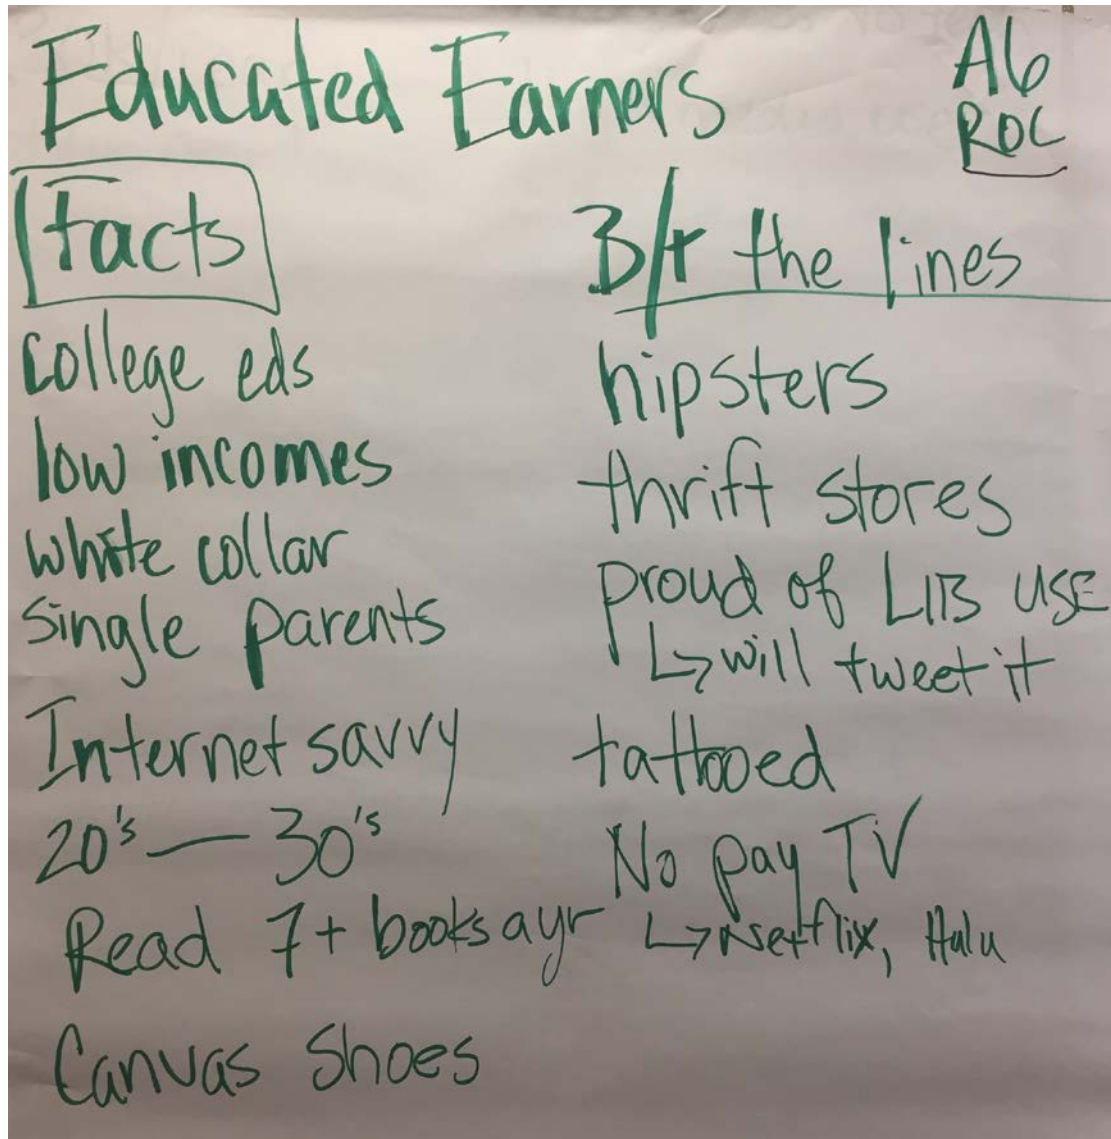 Educated Earners
A6
ROC
Facts
college eds
low incomes
white collar
single parents
Internet savvy
20's — 30's
Read 7+ books a yr
Canvas Shoes
B/t the lines
hipsters
thrift stores
proud of LIB USE
↳ will tweet it
tattooed
No pay TV
↳ Netflix, Hulu